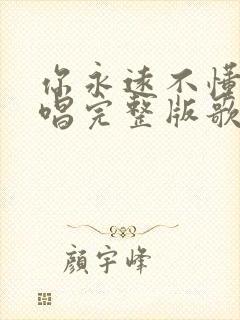 你永远不懂
唱完整版歌
颜宇峰